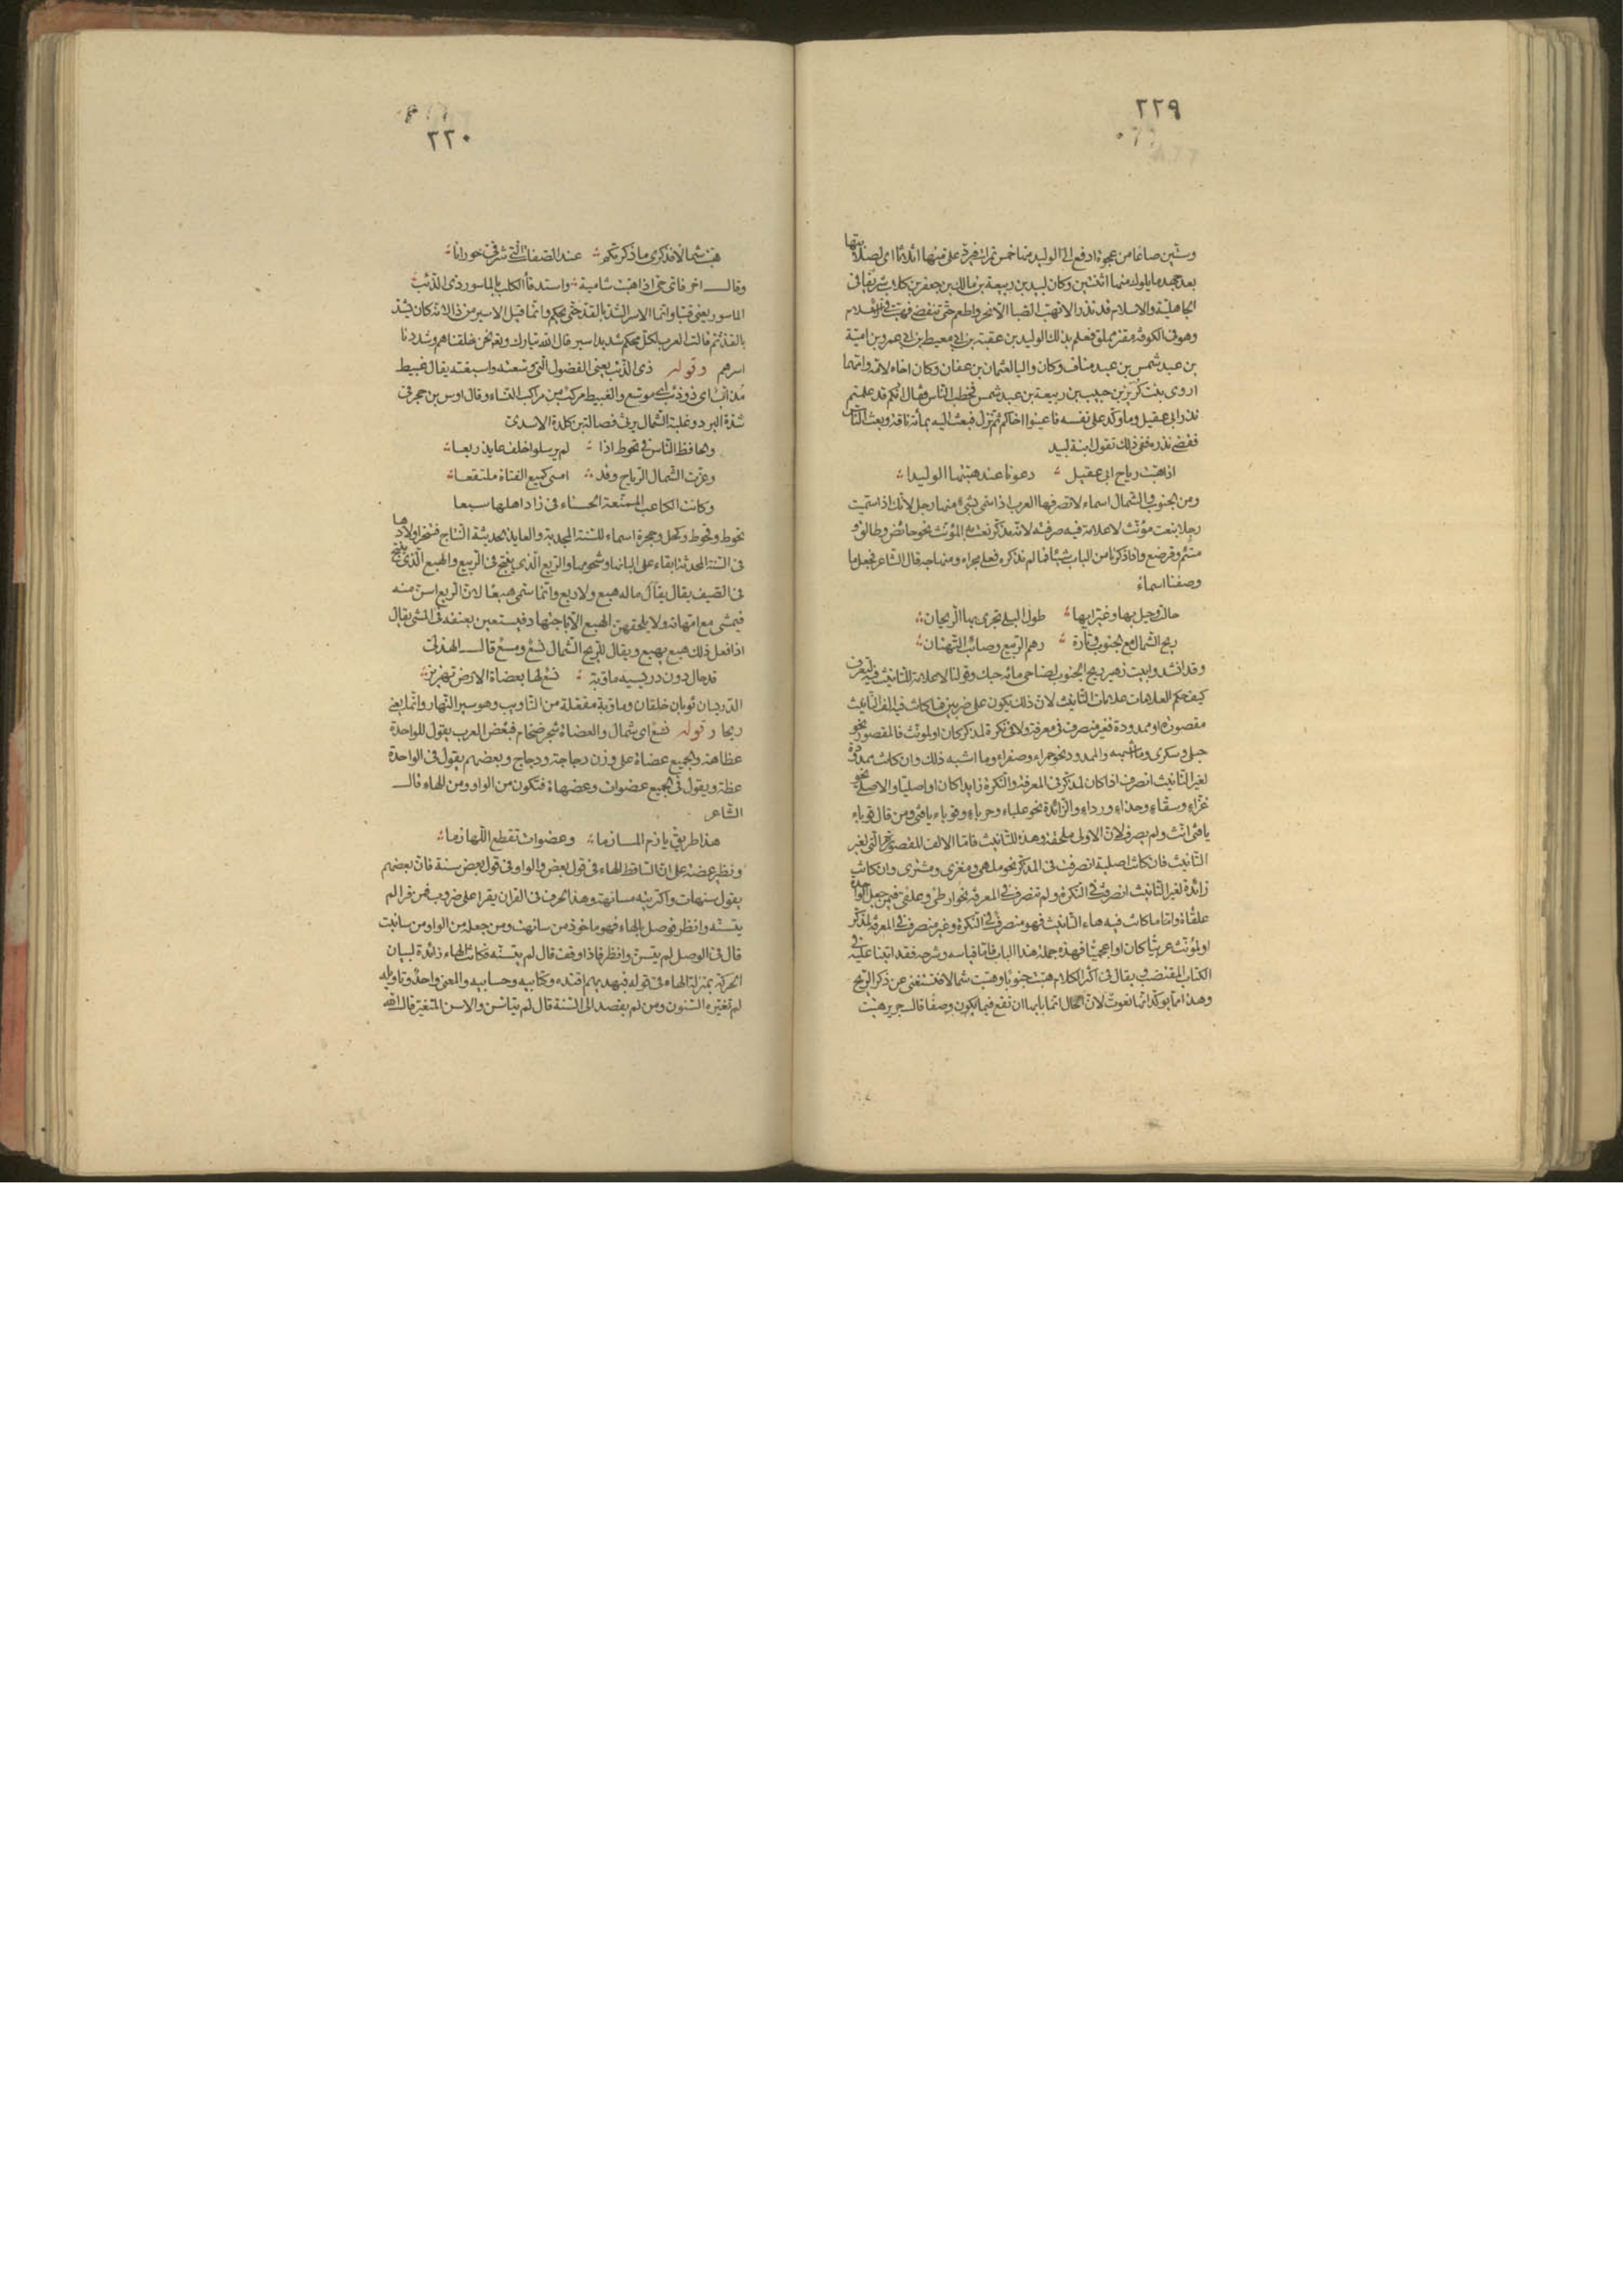 ٢٢٩
وستين صاعا من عجوة ادفع الى الوليد منها خمس تمرات فيرد على منها اثلاثا اى لصلابتها
بعد جهد ما يلوك منها اثنتين وكان لبيد بن ربيعة بن مالك بن جعفر بن كلاب شريفا فى
الجاهلية والاسلام قد نذر الا تهب الصبا الا نحر واطعم حتى تنقضى فهبت فى الاسلام
وهو فى الكوفة مقتر مملق فعلم بذلك الوليد بن عقبة بن ابى معيط بن ابى عمرو بن امية
بن عبد شمس بن عبد مناف وكان واليا لعثمان بن عفان وكان اخاه لامه وامهما
اروى بنت كريز بن حبيب بن ربيعة بن عبد شمس فخطب الناس وقال انكم قد علمتم
نذر ابى عقيل وما وكد على نفسه فاعينوا اخاكم ثم نزل فبعث اليه بمائة ناقة وبعث الناس
فقضى نذره ففى ذلك تقول ابنة لبيد
اذا هبت رياح ابى عقيل دعونا عند هبتها الوليدا
ومن الجنوب والشمال اسماء لا تصرفها العرب اذا سمى بشئ منها رجل لانك اذا سميت
رجلا بنعت مؤنث لا علامة فيه صرفته لانه مذكر نعت به المؤنث نحو حائض وطالق و
متئم ومرضع واذا ذكرنا من الباب شيئا فما لم نذكره فعلى مجراه ومنهاجه قال الشاعر فجعل ما
وصفنا اسماء
حالت وحيل بها وغير ايها طول البلى تجرى بها الريحان
ريح الشمال مع الجنوب وتارة رهم الربيع وصائب التهتان
وقد انشدوا بيت زهير ريح الجنوب لضاحى مائه حبك وقولنا لا علامة للتانيث فيه لتعرف
كيف حكم العلامات علامات التانيث لان ذلك يكون على ضربين فما كانت فيه الف التانيث
مقصورة او ممدودة فغير منصرف فى معرفة ولا فى نكرة لمذكر كان او لمؤنث فالمقصور نحو
حبلى وسكرى وما اشبهه والممدود نحو حمراء وصفراء وما اشبه ذلك وان كانت ممدودة
لغير التانيث انصرف اذا كان لمذكر فى المعرفة والنكرة زايدا كان او اصليا والاصلى نحو
غزاء وسقاء وحذاء ورداء والزائدة نحو علباء وحرباء وقوباء يا فتى ومن قال قوباء
يا فتى انث ولم يصرف لان الاولى ملحقة وهذه للتانيث فاما الالف المقصورة التى لغير
التانيث فان كانت اصلية انصرفت فى المذكر نحو ملهى ومغزى ومشترى وان كانت
زائدة لغير التانيث انصرف فى النكرة ولم تنصرف فى المعرفة نحو ارطى وعلقى فيمن جعل الواحدة
علقاة واما ما كانت فيه هاء التانيث فهو منصرف فى النكرة وغير منصرف فى المعرفة لمذكر
او لمؤنث عربيا كان او اعجميا فهذه جملة هذا الباب فاما قياسه وشرحه فقد اتينا عليه فى
الكتاب المقتضب ويقال فى اكثر الكلام هبت جنوبا وهبت شمالا فتستغنى عن ذكر الريح
وهذا مما يؤكد انها نعوت لان الحال انما بابها ان تقع فيما يكون وصفا قال جرير هبت
٢٢٠
هبت شمالا فذكرى ما ذكرتكم عند الصفاة التى شرقى حورانا
وقال اخر فاتى حى اذا هبت شامية واستدفأ الكلب بالماسور ذى الذئب
الماسور يعنى قتبا وانما الاسر الشد بالقد حتى يحكم وانما قيل الاسير من ذا لانه كان يشد
بالقد ثم قالت العرب لكل محكم شديد اسير قال الله تبارك وتع نحن خلقناهم وشددنا
اسرهم وقوله ذى الذئب يعنى الفضول التى وسعته واسبغته يقال غبيط
مذاب اى ذو ذئب اى موسع والغبيط مركب من مراكب النساء وقال اوس بن حجر فى
شدة البرد وغلبة الشمال يرثى فضالة بن كلدة الاسدى
والحافظ الناس فى تحوط اذا لم يرسلوا خلف عايذ ربعا
وعزت الشمال الرياح وقد امسى كميع الفتاة ملتفعا
وكانت الكاعب الممنعة الحسناء فى زاد اهلها سبعا
تحوط وقحوط وكحل وحجرة اسماء للسنة المجدبة والعايذ الحديثة النتاج فتنحر اولادها
فى السنة المجدبة ابقاء على البانها وشحومها والربع الذى ينتج فى الربيع والهبع الذى ينتج
فى الصيف يقال يقال ماله هبع ولا ربع وانما سمى هبعا لان الربع اسن منه
فيمشى مع امهاته ولا يلحقهن الهبع الا باجتهاد فيستعين بعنقه فى المشى يقال
اذا فعل ذلك هبع يهبع ويقال للريح الشمال نسع ومسع قال الهذلى
قد حال دون دريسيه ماوبة نسع لها بعضاة الارض تهزيز
الدريسان ثوبان خلقان وماوبة مفعلة من التاويب وهو سير النهار وانما يعنى
ريحا وقوله نسع اى شمال والعضاة شجر ضخام فبعض العرب يقول للواحدة
عظاهة والجميع عضاة على وزن دجاجة ودجاج وبعضهم يقول فى الواحدة
عظة ويقول فى الجميع عضوات وعضهاة فتكون من الواو ومن الهاء قال
الشاعر
هذا طريق يازم المازما وعضوات تقطع اللهازما
ونظير عضة على ان الساقط الهاء فى قول بعض والواو فى قول بعض سنة فان بعضهم
يقول سنهات واكتريته مسانهة وهذا الحرف فى القران يقرا على ضروب فمن قرا لم
يتسنه وانظر فوصل بالهاء فهو ماخوذ من سانهت ومن جعله من الواو من سانيت
قال فى الوصل لم يتسن وانظر فاذا وقف قال لم يتسنه فكانت الهاء زائدة لبيان
الحركة بمنزلة الهاء فى قوله فبهديهم اقتده وكتابيه وحسابيه والمعنى واحد وتاويله
لم تغيره السنون ومن لم يقصد الى السنة قال لم يتاسن والاسن المتغير قال الله